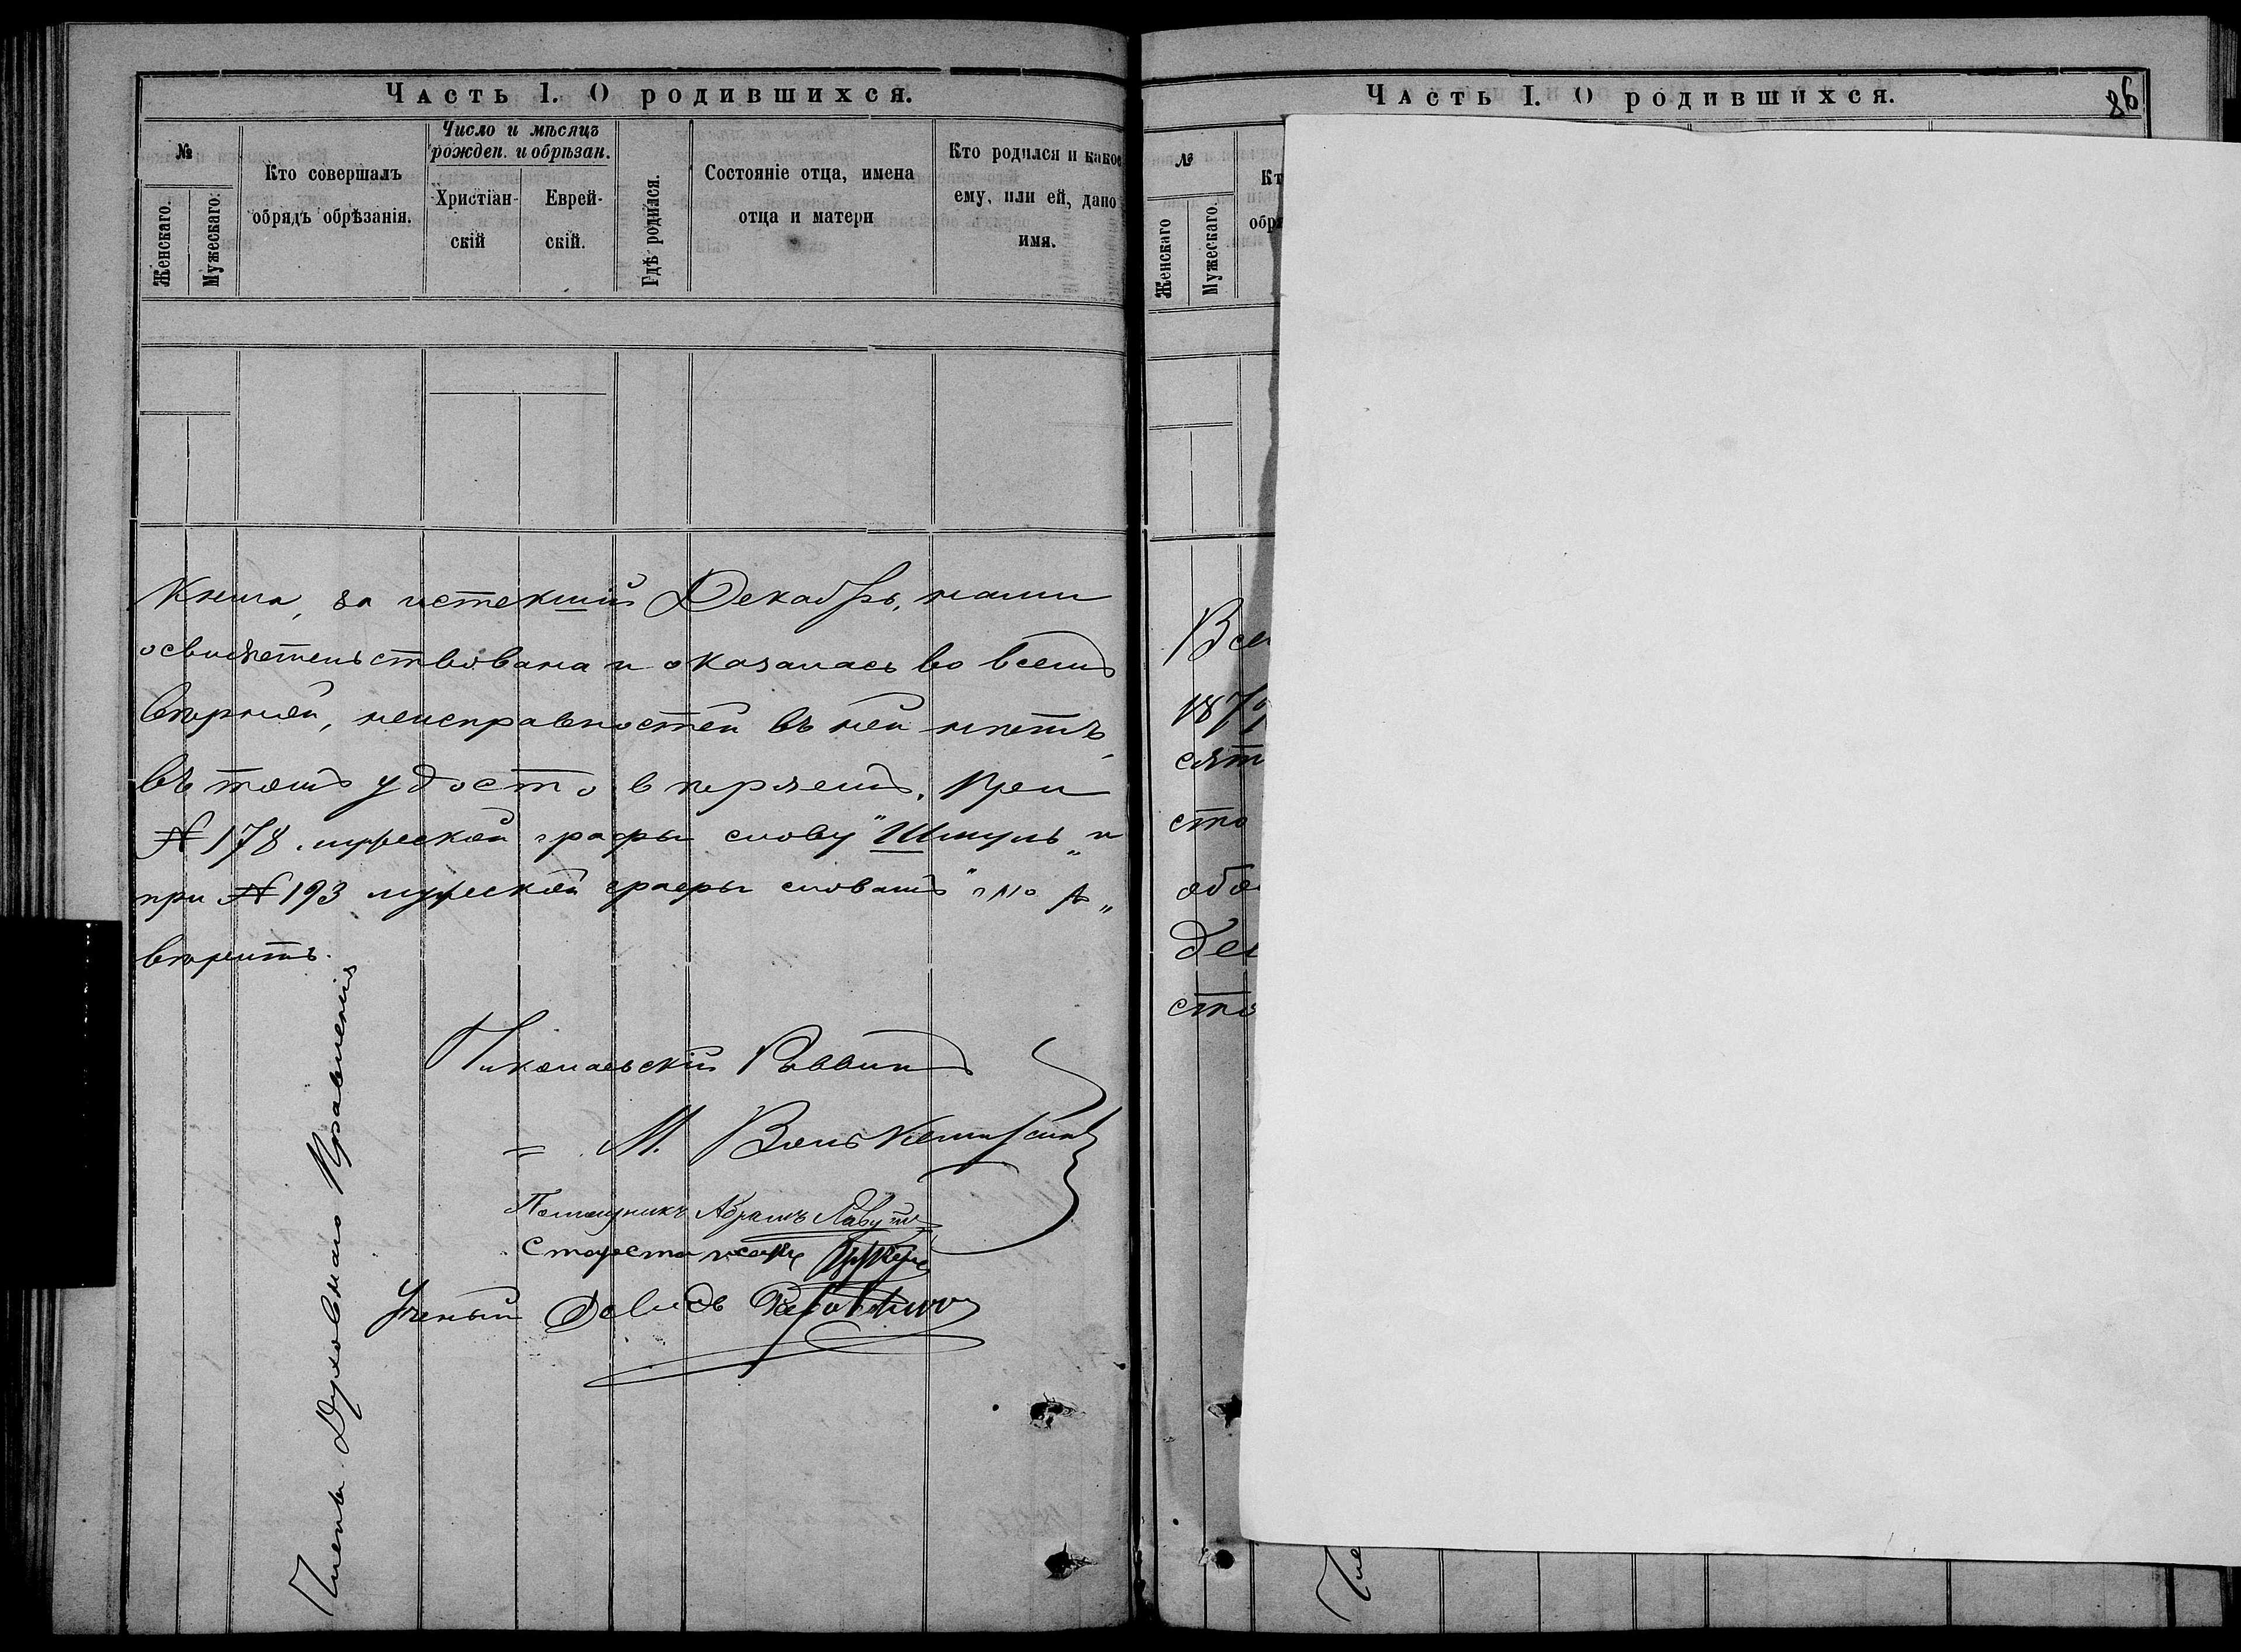 Часть I. О родившихся.
№
Женскаго.
Мужескаго.
Кто совершалъ
обрядъ обрѣзанія.
Число и мѣсяцъ
рожден. и обрѣзан.
Христіан-
скій
Еврей-
скій.
Гдѣ родился.
Состояніе отца, имена
отца и матери
Кто родился и какое
ему, или ей, дано
имя.
Книга, за истекшій Декабрь, нами
освидѣтельствована и оказалась во всемъ
вѣрной, неисправностей въ ней нѣтъ,
въ томъ удостовѣряемъ. При
№ 178 мужеской графы слову "Шмуль" и
при № 193 мужеской графы словамъ
вѣрить.
Члены Духовнаго Правленія
Николаевскій Раввинъ
М.
Помощникъ Абрамъ
Староста
Ученый Давидъ
Часть I. О родившихся.
86
№
Женскаго
Мужескаго.
Кт
обря
Всег
187
сят
сто
обо
де
сто
Чле